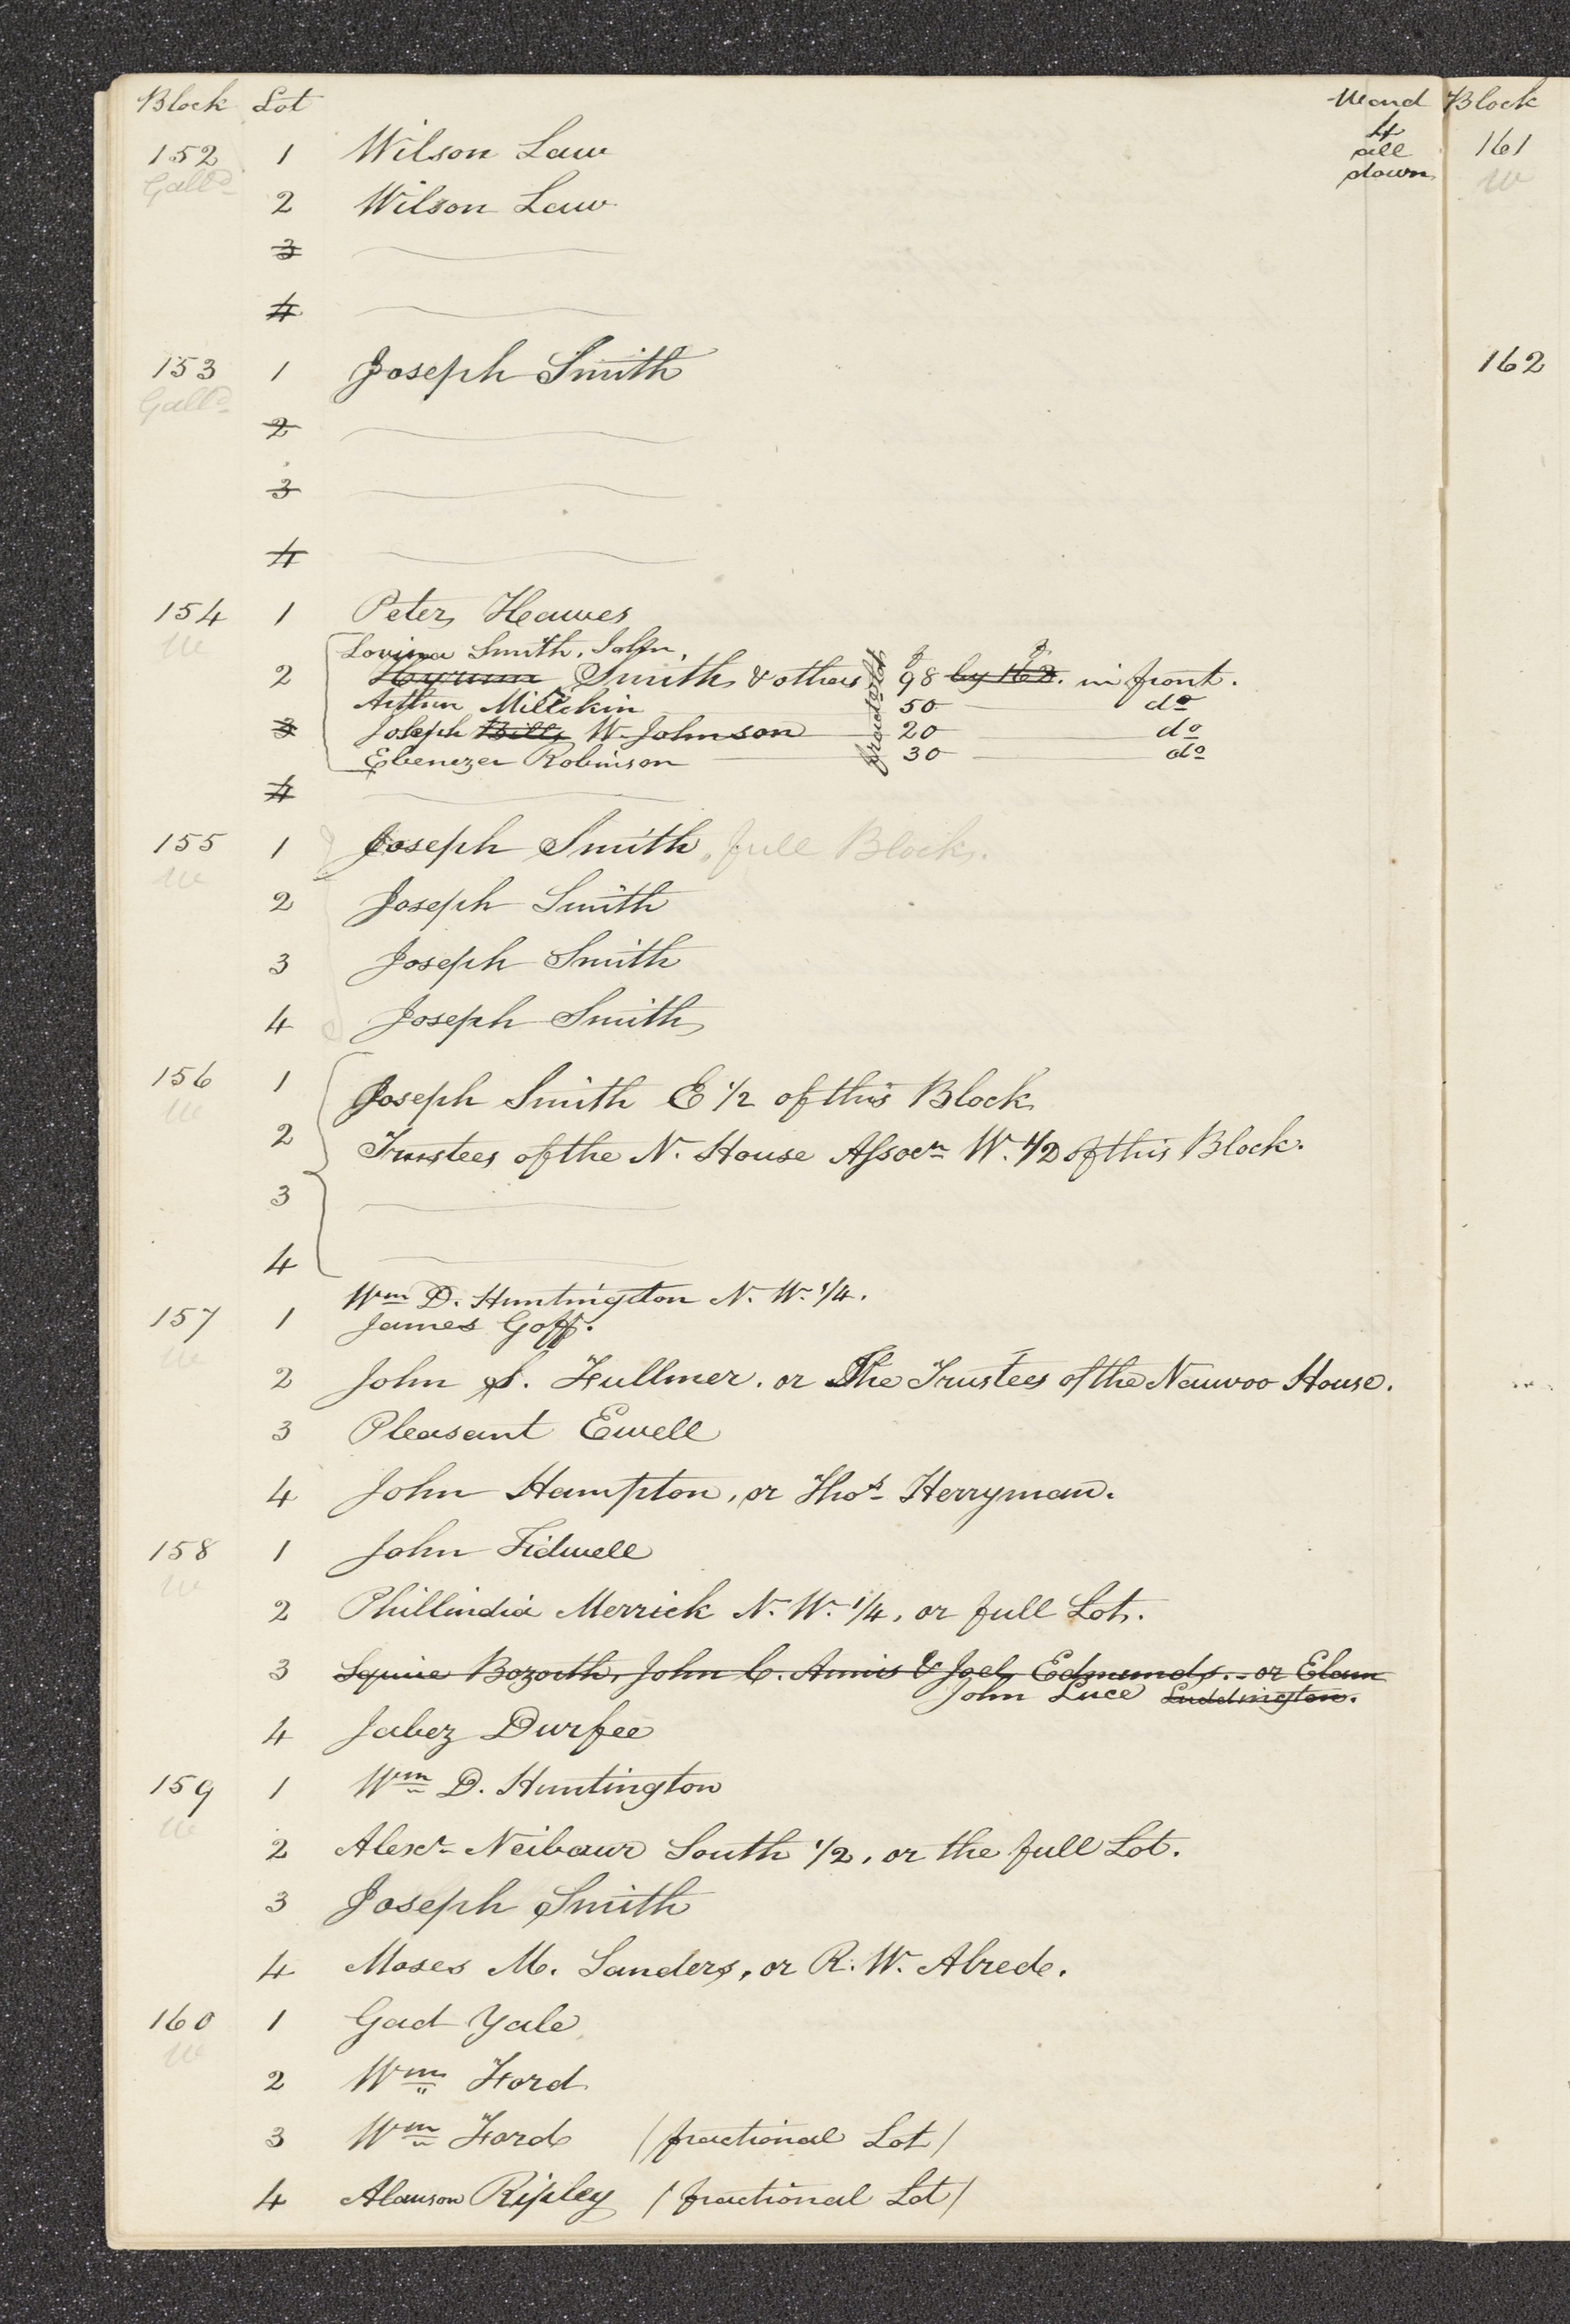 Block Lot Ward Block
152 1 Wilson Law 4 all down 161
Galld W
2 Wilson Law
3
4
153 1 Joseph Smith 162
Galld
2
3
4
154 1 Peter Hawes
W
Lovina Smith, John,
2 Hyrum Smith & others 98 by 162. in front.
Arthur Millikin 50 do
3 Joseph Bills W. Johnson 20 do
Ebenezer Robinson 30 do
4
155 1 Joseph Smith, full Block.
W
2 Joseph Smith
3 Joseph Smith
4 Joseph Smith
156 1 Joseph Smith E 1/2 of this Block
W
2 Trustees of the N. House Assocn W. 1/2 of this Block.
3
4
Wm D. Huntington N. W. 1/4.
157 1 James Goff.
W
2 John S. Fullmer. or The Trustees of the Nauvoo House.
3 Pleasant Ewell
4 John Hampton, or Thos Herryman.
158 1 John Tidwell
W
2 Phillindia Merrick N. W. 1/4, or full Lot.
3 Squire Bozorth, John C. Annis & Joel Edmunds. or Elam
John Luce Luddington.
4 Jabez Durfee
159 1 Wm D. Huntington
W
2 Alexr Neibaur South 1/2, or the full Lot.
3 Joseph Smith
4 Moses M. Sanders, or R. W. Alred.
160 1 Gad Yale
W
2 Wm Ford
3 Wm Ford /fractional Lot/
4 Alanson Ripley /fractional Lot/